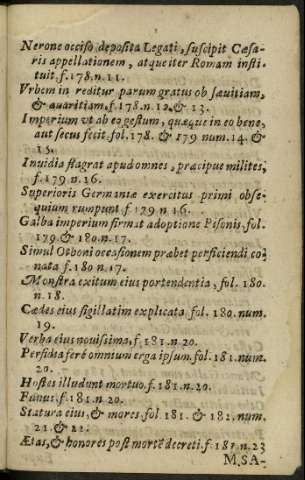 Nerone occiso deposita Legati, suscipit Cæsa-
ris appellationem, atque iter Romam insti-
tuit. f. 178. n. 11.
Vrbem in reditur parum gratus ob sæuitiam,
& auaritiam. f. 178. n. 12. & 13.
Imperium vt ab eo gestum, quæque in eo bene,
aut secus fecit. fol. 178. & 179 num. 14. &
15.
Inuidia flagrat apud omnes, præcipue milites.
f. 179 n. 16.
Superioris Germaniæ exercitus primi obse-
quium rumpunt. f 179 n 16.
Galba imperium firmat adoptione Pisonis. fol.
179 & 180. n. 17.
Simul Othoni occasionem præbet perficiendi co-
nata f. 180 n. 17.
Monstra exitum eius portendentia, fol. 180.
n. 18.
Cædes eius sigillatim explicata. fol. 180. num.
19.
Verba eius nouissima, f. 181. n. 20.
Perfidia ferè omnium erga ipsum. fol. 181. num.
20.
Hostes illudunt mortuo. f. 181. n. 20.
Funus. f. 181. n. 20.
Statura eius, & mores. fol. 181. & 182. num.
21. & 22.
Ætas, & honores post mortē decreti. f. 182 n. 23
M. SA-